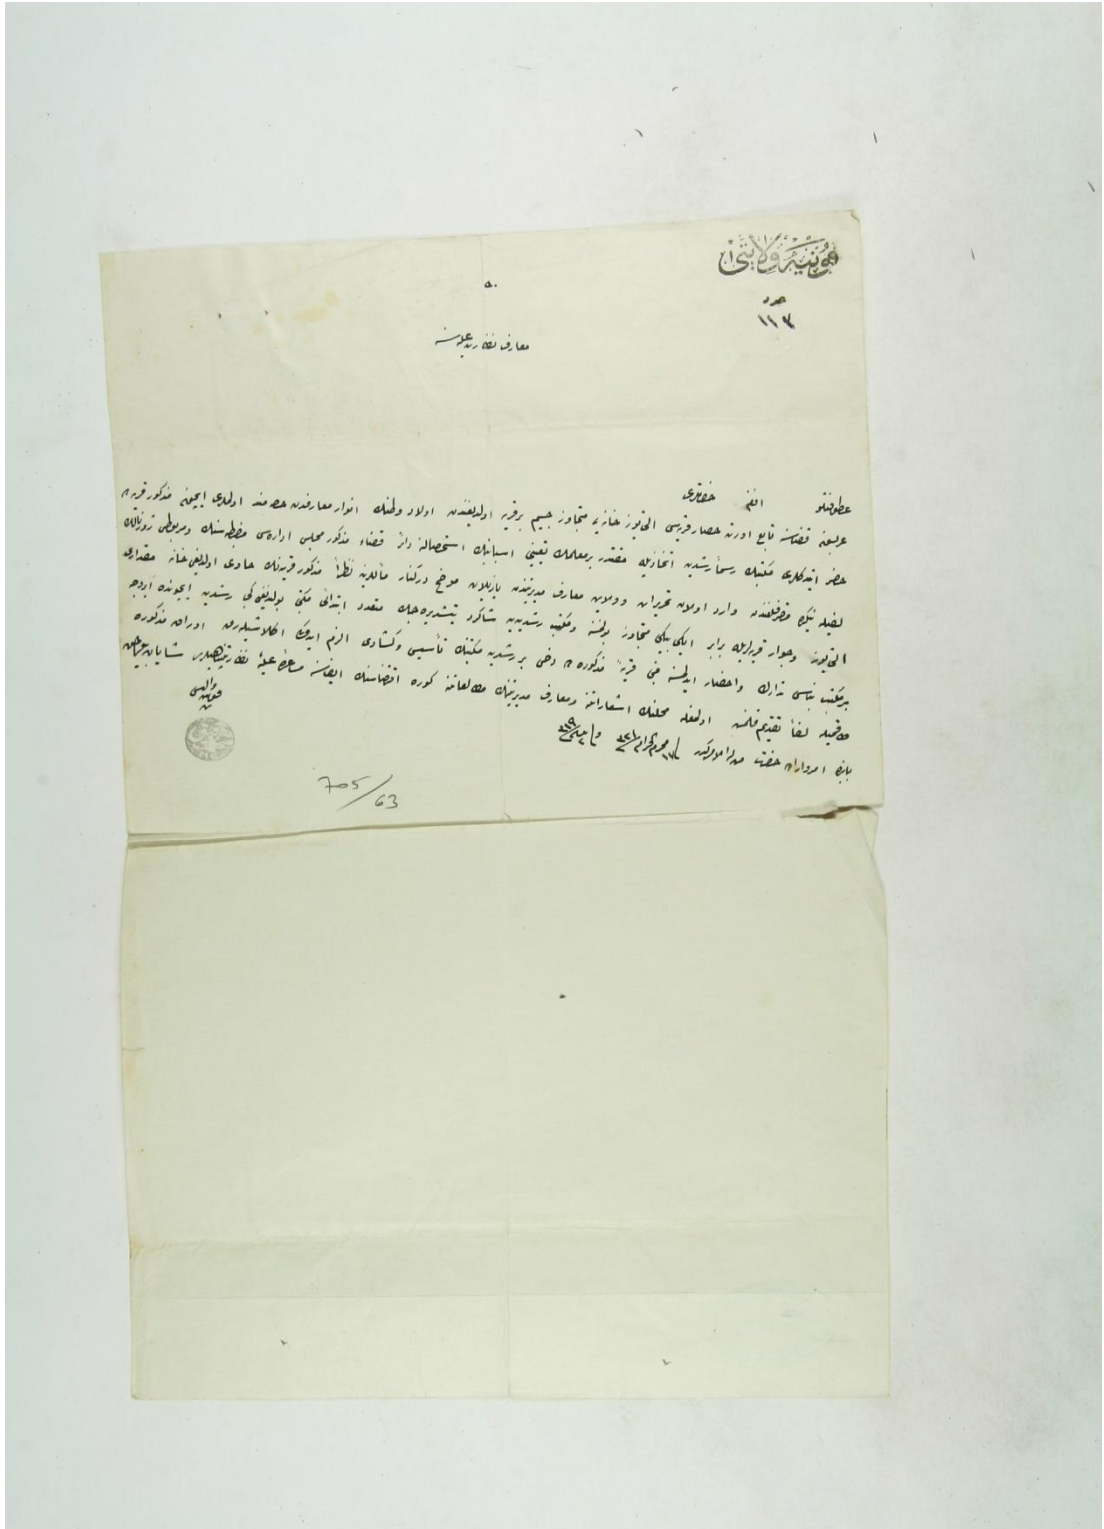 قونیه ولایتی
عدد
١١٣
معارف نظارت جلیله‌سنه
عطوفتلو افندم حضرتلری
قضاسنه تابع اورته حصار قریه‌سی التی‌یوز خانه‌یی متجاوز جسیم بر قریه اولدیغندن اولاد وطنك انوار معارفدن حصه‌مند اولملری ایچون مذکور قریه‌ده
مکتبك رسماً رشدیه اتخاذیله مقتدر بر معلمك تعیینی اسبابنك استحصالنه دائر قضاء مذکور مجلس اداره‌سی مضبطه‌سنك
لفیله نیکده متصرفلغندن وارد اولان تحریرات وولایت معارف مدیریتندن یازیلان موضح درکنار مآللرینه نظراً مذکور قریه‌نك حاوی اولدیغی خانه مقداری
التی‌یوز وجوار قریه‌لریله برابر ایکی بیکی متجاوز بولنمسنه ومکتب رشدیه‌یه شاکرد یتشدیره‌جك متعدد ابتدائی مکتبی بولندیغی کبی رشدیه ایچونده
بر مکتب بناسی تدارك واحضار ایدلمسنه مبنی قریهٔ مذکوره‌ده دخی بر رشدیه مکتبنك تأسیس وکشادی الزم ایدوکی اکلاشیله‌رق اوراق مذکوره
لفاً تقدیم قلنمش اولمغله محلنك اشعاراتنه ومعارف مدیریتنك مطالعاتنه کوره اقتضاسنك ایفاسنه مساعدهٔ علیهٔ نظارتپناهیلری شایان بیورلمق
بابنده امر وفرمان حضرت من له الامرکدر فی ١٧ محرم الحرام ٣٢١ وفی ٢ نیسان ٣١٩
قونیه والیسی
705/63